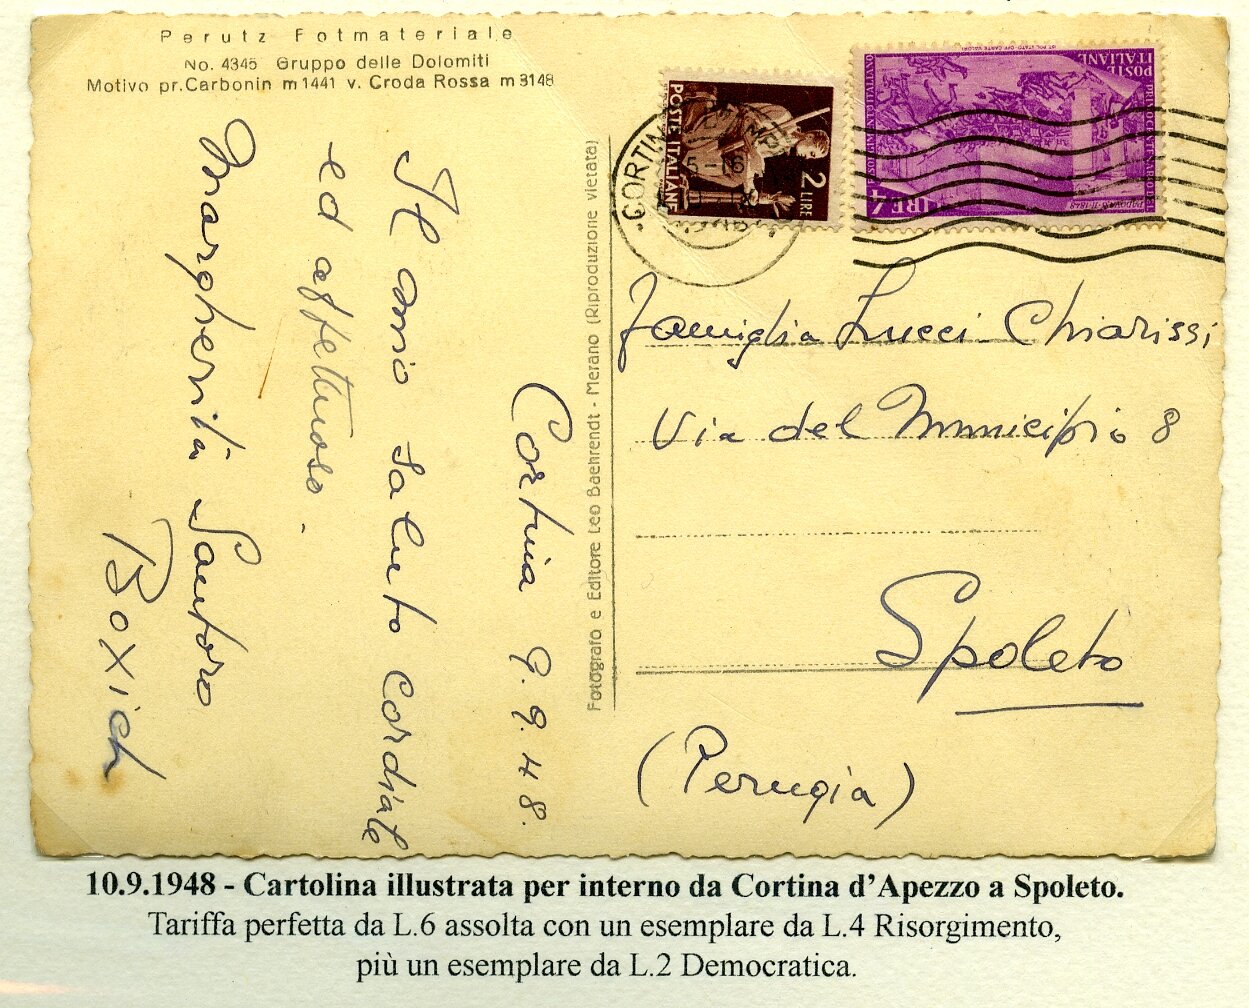 Perutz Fotmateriale
No. 4345 Gruppo delle Dolomiti
Motivo pr. Carbonin m 1441 v. Croda Rossa m 3148
Cortina 9.9.48.
Il mio saluto cordiale
ed affettuoso.
Margherita Santoro
Boxich
Fotografo e Editore Leo Baehrendt - Merano (Riproduzione vietata)
POSTE ITALIANE
2 LIRE
CORTINA
POSTE
ITALIANE
PRIMO CENTENARIO DEL RISORGIMENTO ITALIANO
PADOVA 8-II-1848
LIRE 4
Famiglia Lucci Chiarissi
Via del Municipio 8
Spoleto
(Perugia)
10.9.1948 - Cartolina illustrata per interno da Cortina d'Apezzo a Spoleto.
Tariffa perfetta da L.6 assolta con un esemplare da L.4 Risorgimento,
più un esemplare da L.2 Democratica.